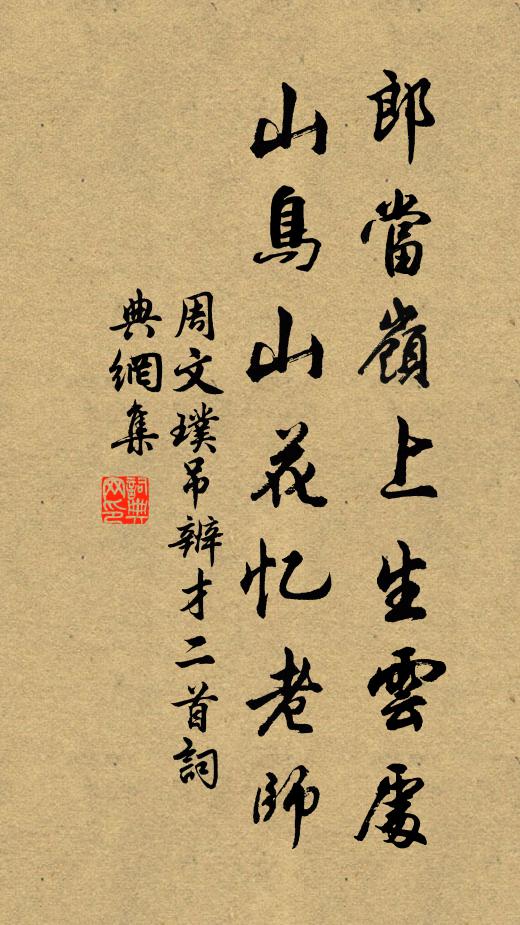 郎當嶺上生雲處
山鳥山花忆老師
周文璞吊辨才二首詞
典網集
詞典網印